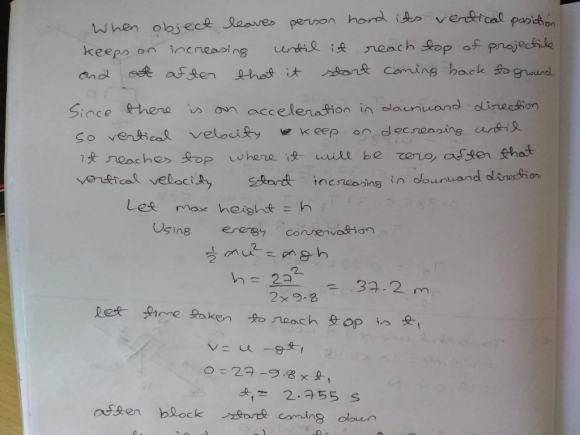 When object leaves person hand its vertical position
keeps on increasing until it reach top of projectile
and after that it start coming back to ground
Since there is an acceleration in dounward direction
so vertical velocity keep on decreasing until
it reaches top where it will be zero, after that
vertical velocity start increasing in dounward direction
Let max height = h
Using energy conservation
½ mu² = mgh
h = 27² / 2×9.8 = 37.2 m
let time taken to reach top is t₁
v = u - gt₁
0 = 27 - 9.8 × t₁
t₁ = 2.755 s
after block start coming down